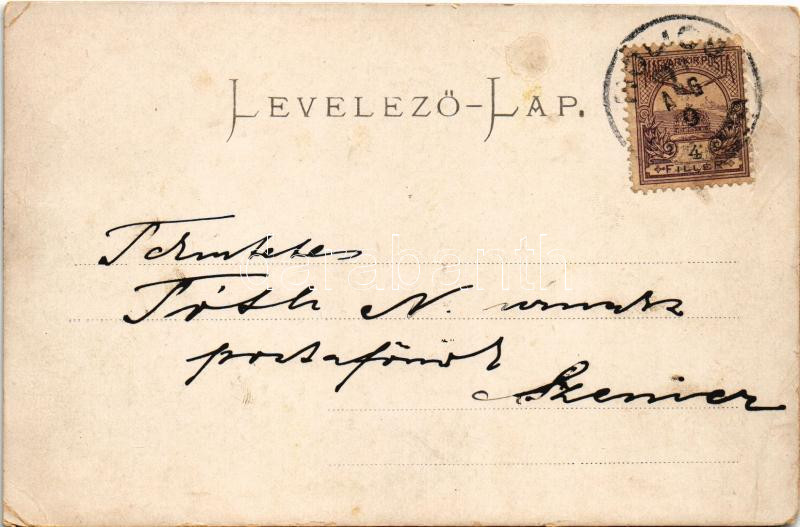 LEVELEZŐ-LAP.
MAGYAR KIR. POSTA
AUG
9
4
FILLÉR
Tekintetes
Tóth N. urnak
postafőnök
Szenicz
darabanth